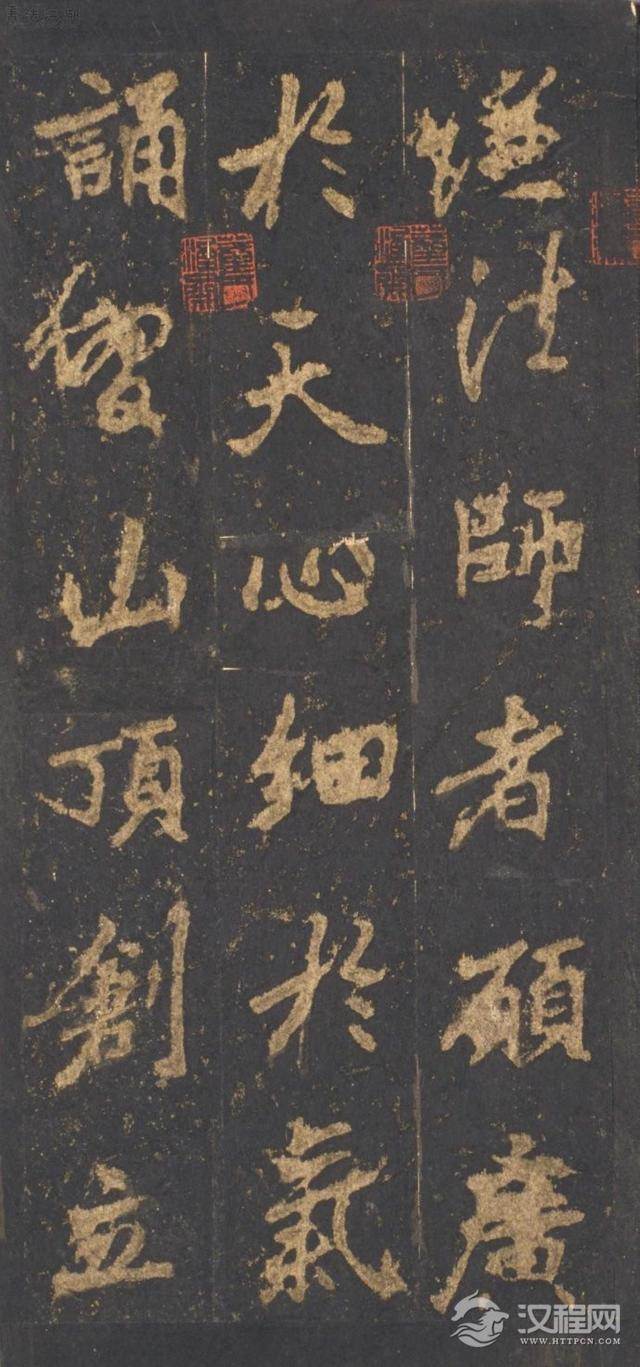 謙法師者願廣
於天心細於氣
誦山頂創立
汉程网
WWW.HTTPCN.COM